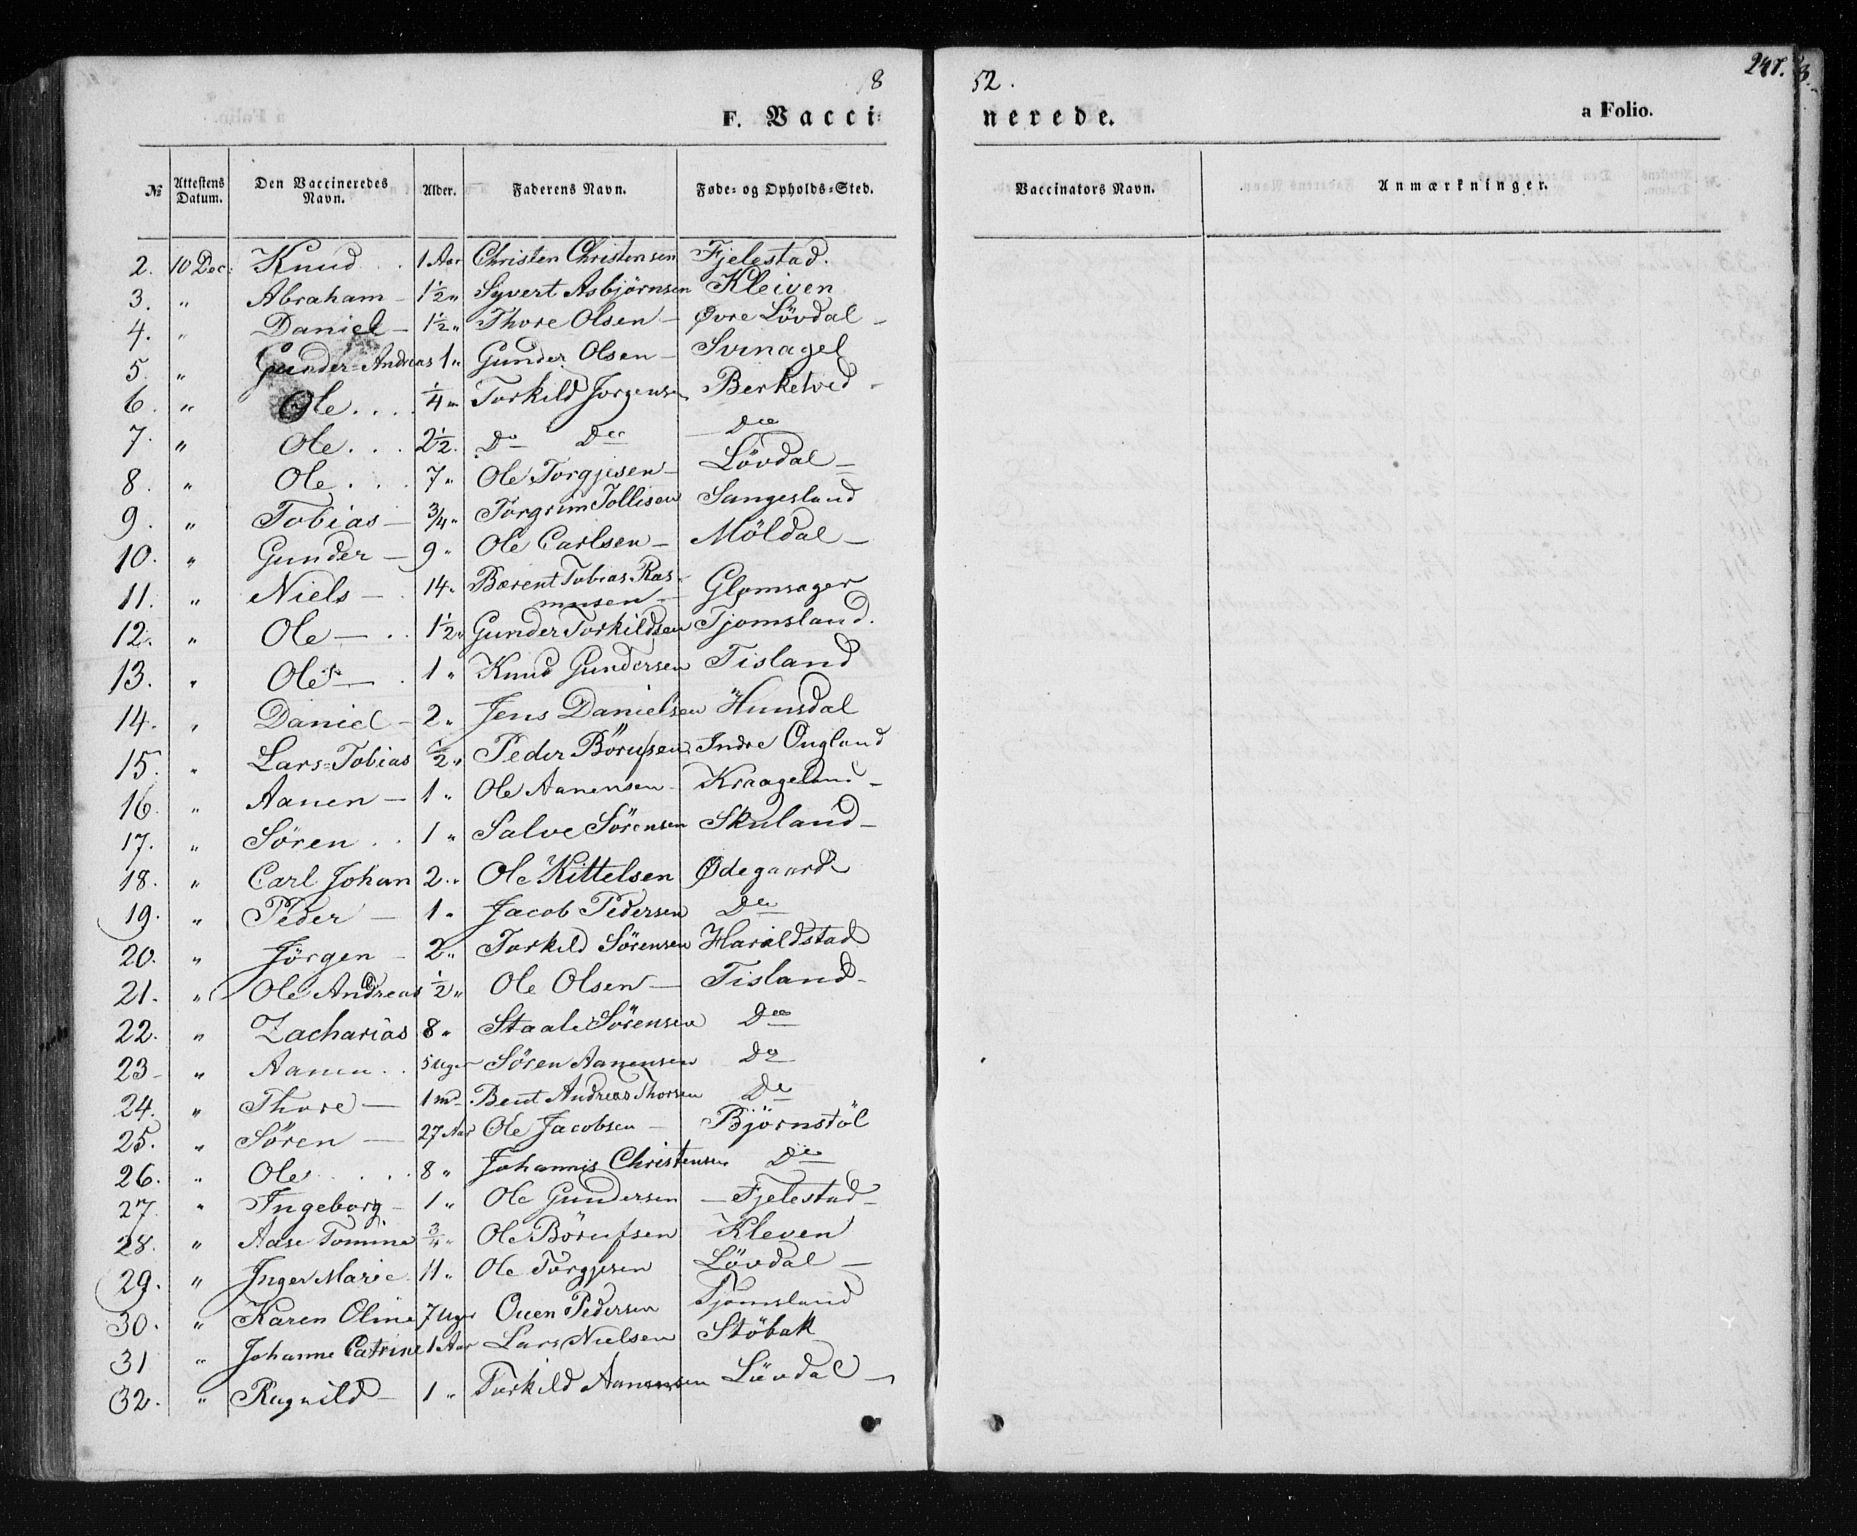 18 52. 247.
F. Vacci- nerede. a Folio.
№ Attestens Datum. Den Vaccineredes Navn. Alder. Faderens Navn. Føde- og Opholds-Sted. Vaccinators Navn. Anmærkninger.
2. 10 Dec: Knud . . 1 Aar Christen Christensen Fjelestad.
3. " Abraham - 1½ " Syvert Asbjörnsen Kleiven
4. " Daniel - 1½ " Thore Olsen - Øvre Lövdal -
5. " Gunder=Andreas 1 " Gunder Olsen - Svinagel
6. " Ole . . . . ¼ " Torkild Jorgensen Berketved -
7. " Ole . . . 2½. Do Do Do
8. " Ole . . . 7 " Ole Torgjesen - Lövdal -
9. " Tobias - ¾ " Torgrim Tollisen Sangesland
10. " Gunder - 9 " Ole Carlsen - Möldal -
11. " Niels - . 14 " Bærent Tobias Ras-
musen - Glomsager
12. " Ole - . . 1½ " Gunder Torkildsen Tjomsland.
13. " Ole - . 1 " Knud Gundersen Tisland
14. " Daniel - 2 " Jens Danielsen Hunsdal
15. " Lars=Tobias ½ " Peder Börufsen Indre Ougland
16. " Aanen - 1 " Ole Aanensen - Kraageland -
17. " Sören . . 1 " Salve Sörensen Skuland -
18. " Carl Johan 2 " Ole Kittelsen Ødegaard
19. " Peder - 1 " Jacob Pedersen Do
20. " Jörgen - 2 " Torkild Sörensen Haraldstad
21. " Ole Andreas ½ " Ole Olsen - Tisland -
22. " Zacharias 8 " Staale Sörensen Do
23 - " Aanen . . 5 Uger Sören Aanensen Do
24. " Thore - 1 md. Bent Andreas Thorsen Do
25. " Sören - 27 Aar Ole Jacobsen - Björnstöl
26. " Ole . . . . 8 " Johannis Christensen Do
27. " Ingeborg - 1 " Ole Gundersen - Fjelestad -
28. " Aase Tomine ¾ " Ole Börufsen Kleven
29. " Inger Marie 11 " Ole Torgjesen Lövdal -
30. " Karen Oline 7 Uger Ouen Pedersen Tjomsland
31 " Johanne Catrine 1 Aar Lars Nielsen Stöbak
32. " Ragnild - 1 " Torkild Aanensen Lövdal -